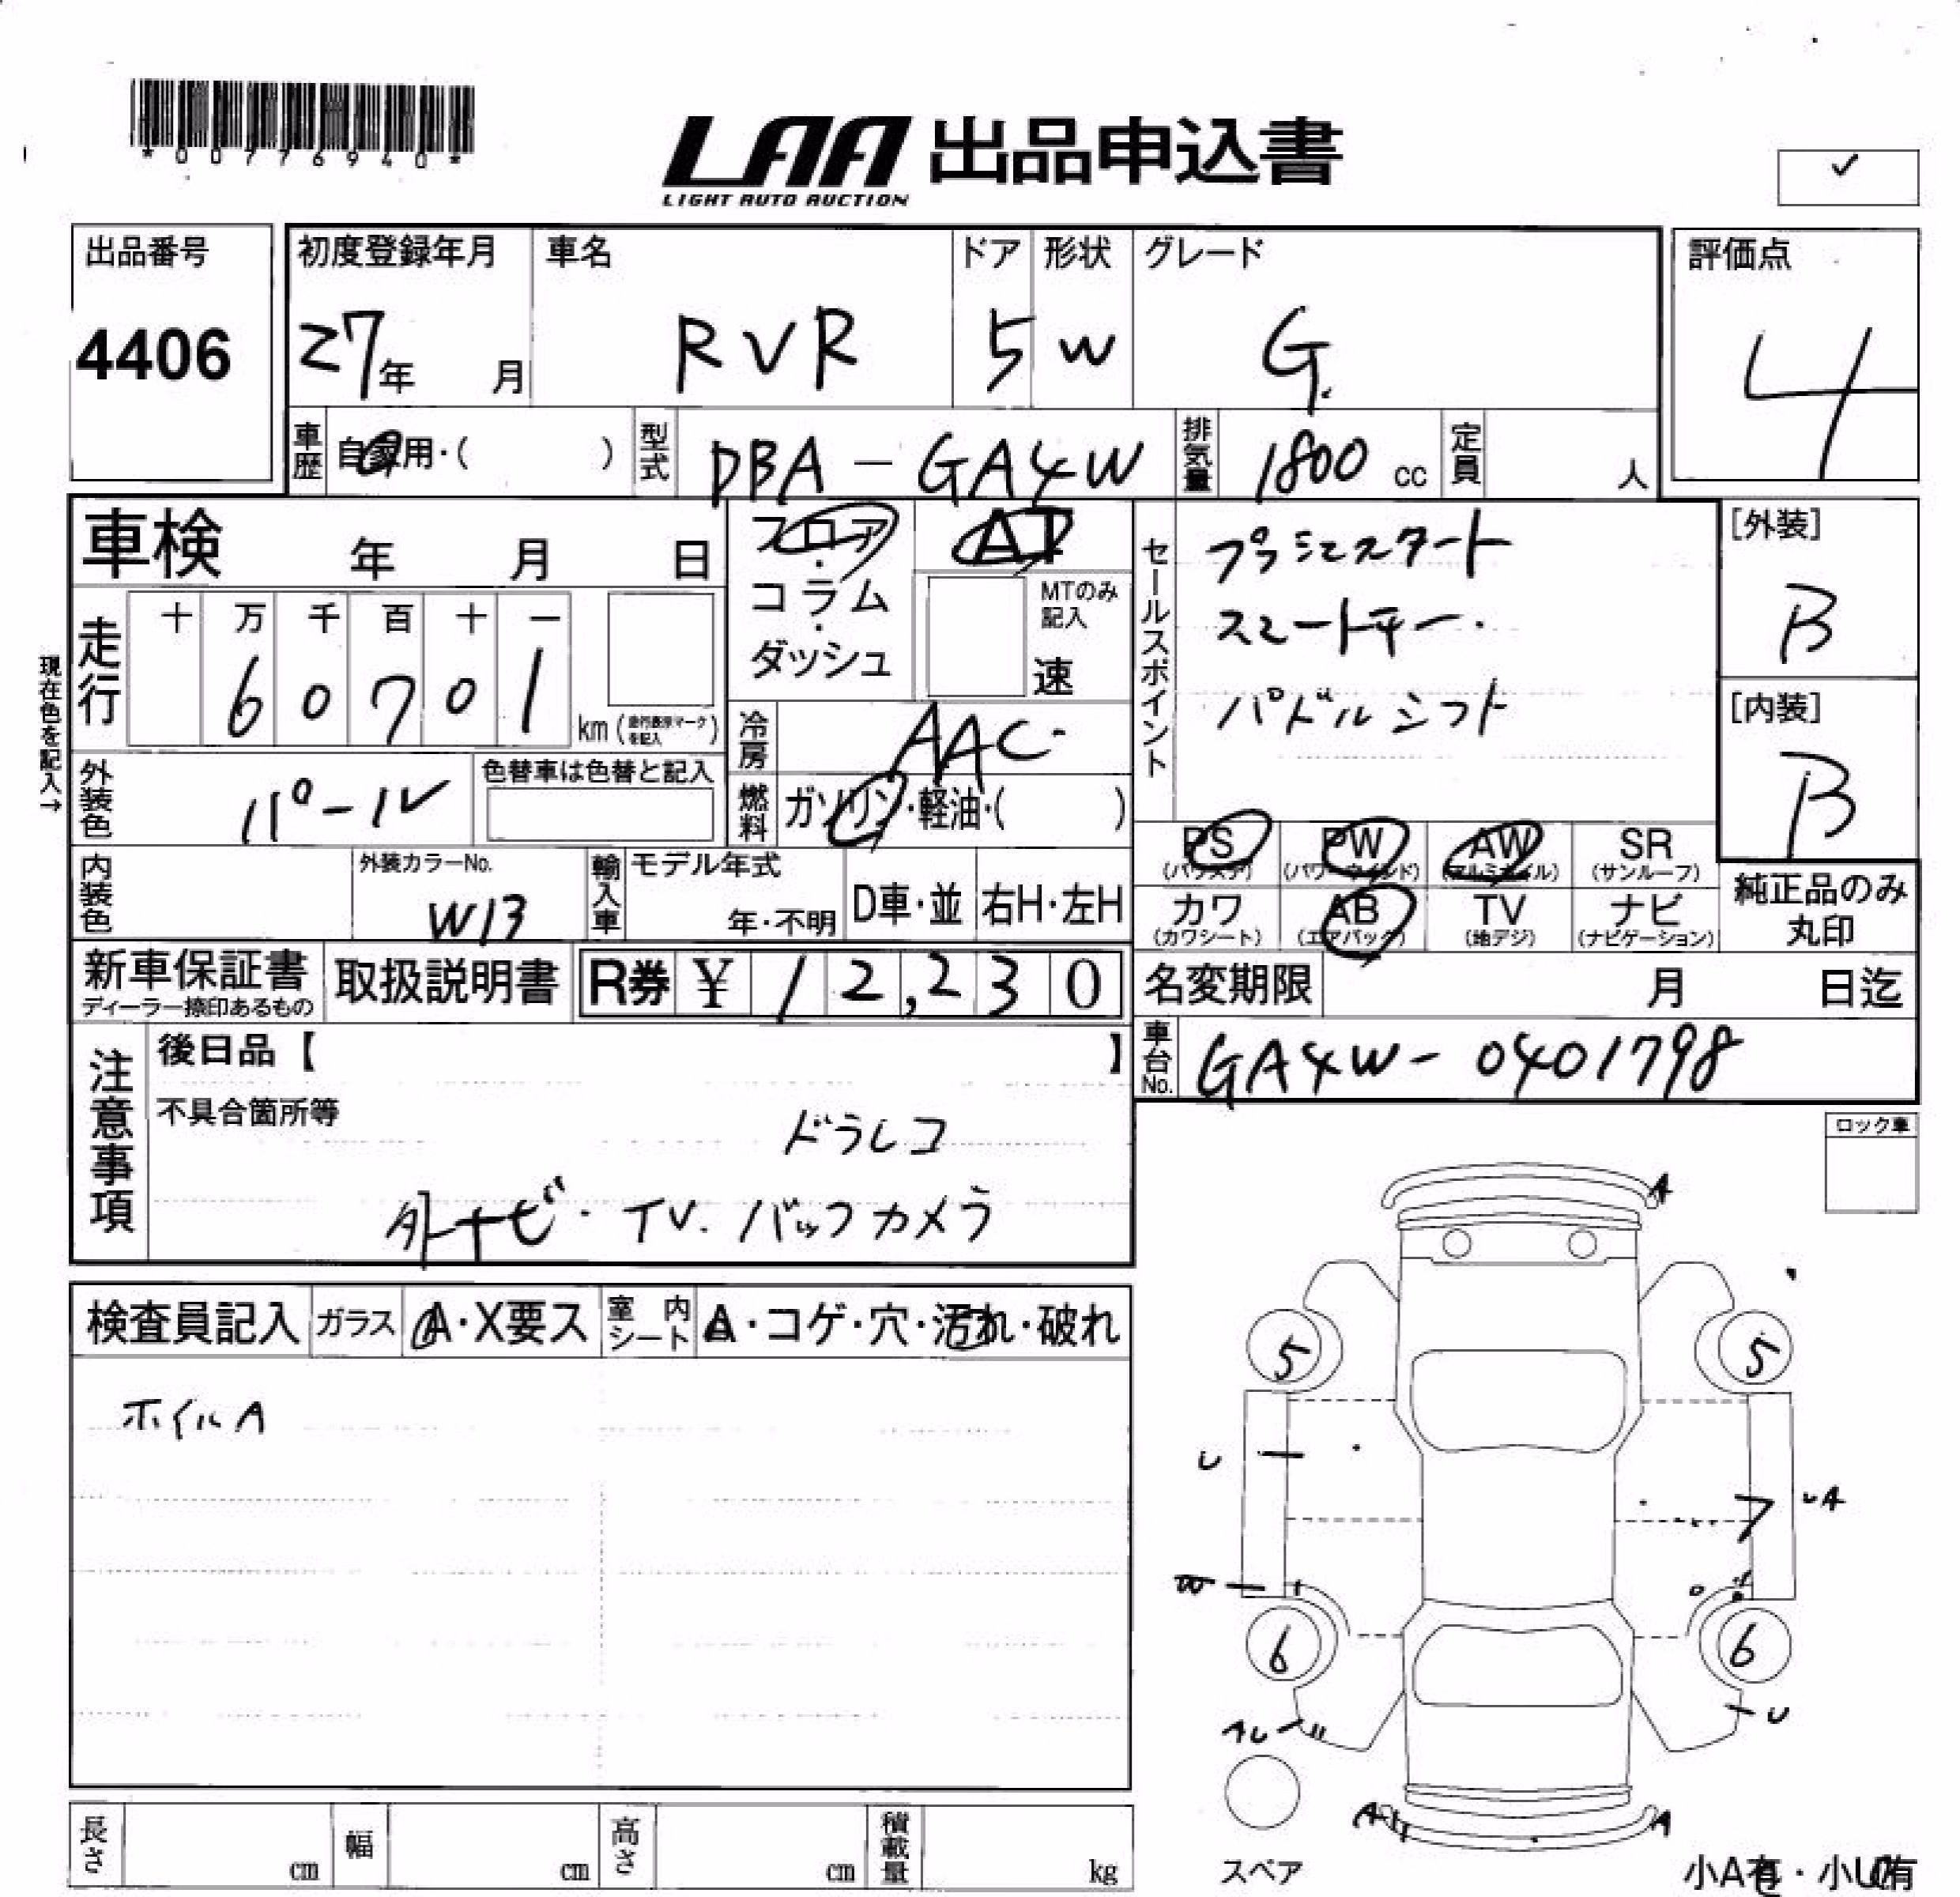 *00776940*
LAA 出品申込書
LIGHT AUTO AUCTION
✓
出品番号
4406
初度登録年月
27年 月
車名
RVR
ドア
5
形状
W
グレード
G
評価点
4
車歴 自家用・( )
型式 DBA-GA4W
排気量 1800 cc
定員 人
車検 年 月 日
フロア・コラム・ダッシュ
AT
MTのみ記入
速
セールスポイント
プッシュスタート
スマートキー.
パドルシフト
[外装]
B
[内装]
B
現在色を記入→
走行
十 万 千 百 十 一
6 0 7 0 1
km (走行表示マークを記入)
冷房 AAC
外装色 パール
色替車は色替と記入
燃料 ガソリン・軽油・( )
PS (パワステ)
PW (パワーウインド)
AW (アルミホイル)
SR (サンルーフ)
カワ (カワシート)
AB (エアバッグ)
TV (地デジ)
ナビ (ナビゲーション)
純正品のみ丸印
内装色
外装カラーNo.
W13
輸入車
モデル年式
年・不明
D車・並
右H・左H
新車保証書
ディーラー捺印あるもの
取扱説明書
R券 ¥ 12,230
名変期限 月 日迄
車台No. GA4W-0401798
注意事項
後日品【 】
不具合箇所等
ドラレコ
外ナビ・TV. バックカメラ
ロック車
検査員記入
ガラス A・X要ス
室内シート A・コゲ・穴・汚れ・破れ
ホイルA
A
5 5
U
UA
W
6 6
AU
U
A A
スペア
小A有・小U有
長さ cm
幅 cm
高さ cm
積載量 kg